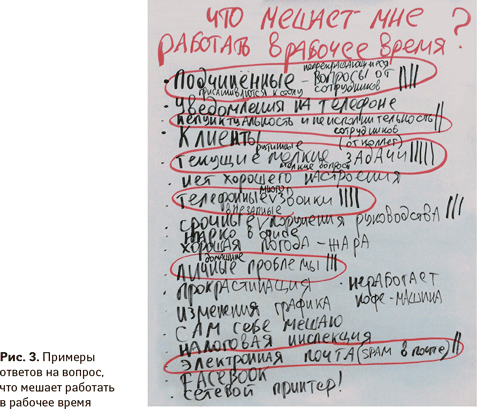 ЧТО МЕШАЕТ МНЕ
РАБОТАТЬ В РАБОЧЕЕ ВРЕМЯ?
непрекращающиеся
• Подчинённые - вопросы от
сотрудников
• Уведомления на телефоне
• Непунктуальность и неисполнительность
сотрудников
• Клиенты
рутинные (от коллег)
• Текущие мелкие задачи
мелкие вопросы
• нет хорошего настроения
много
• Телефонные звонки
внезапные
• срочные поручения руководства
• жарко в офисе
• хорошая погода - жара
домашние
• Личные проблемы
• прокрастинация
• неработает
кофе-машина
• изменения графика
• сам себе мешаю
• налоговая инспекция
• электронная почта (SPAM в почте)
• FACEBOOK
• сетевой принтер!
Рис. 3. Примеры
ответов на вопрос,
что мешает работать
в рабочее время